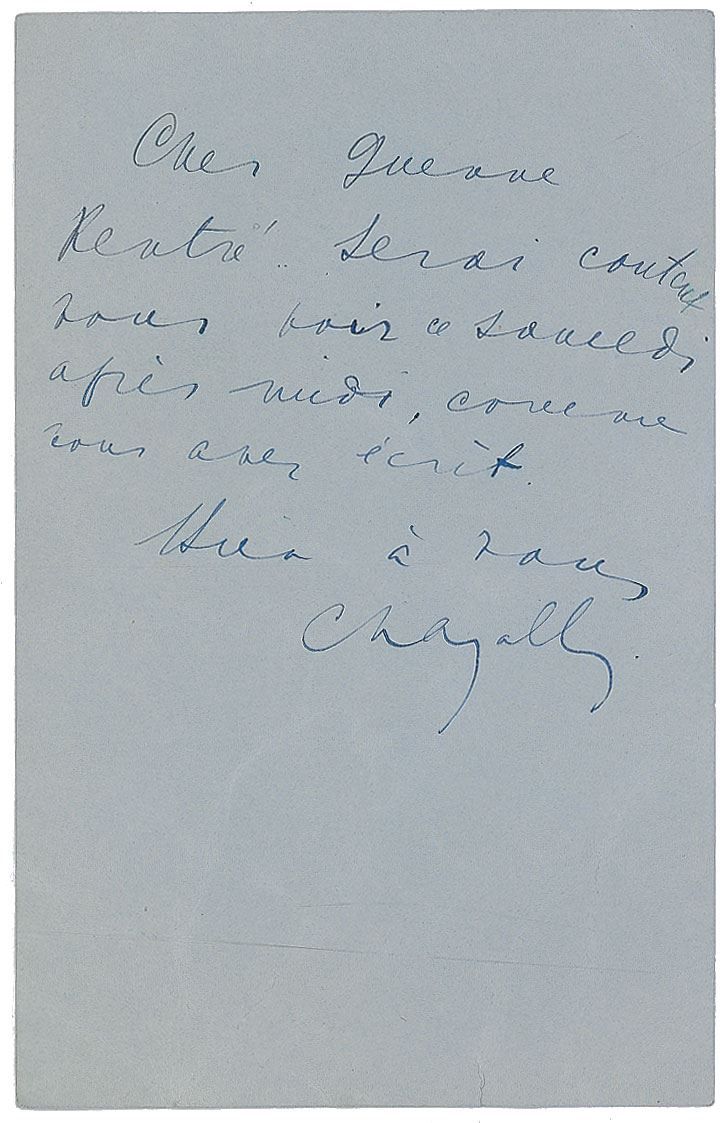 Cher Guenne
Rentré. Serai content
vous voir ce samedi
après midi, comme
vous avez écrit.
Bien à vous
Chagall